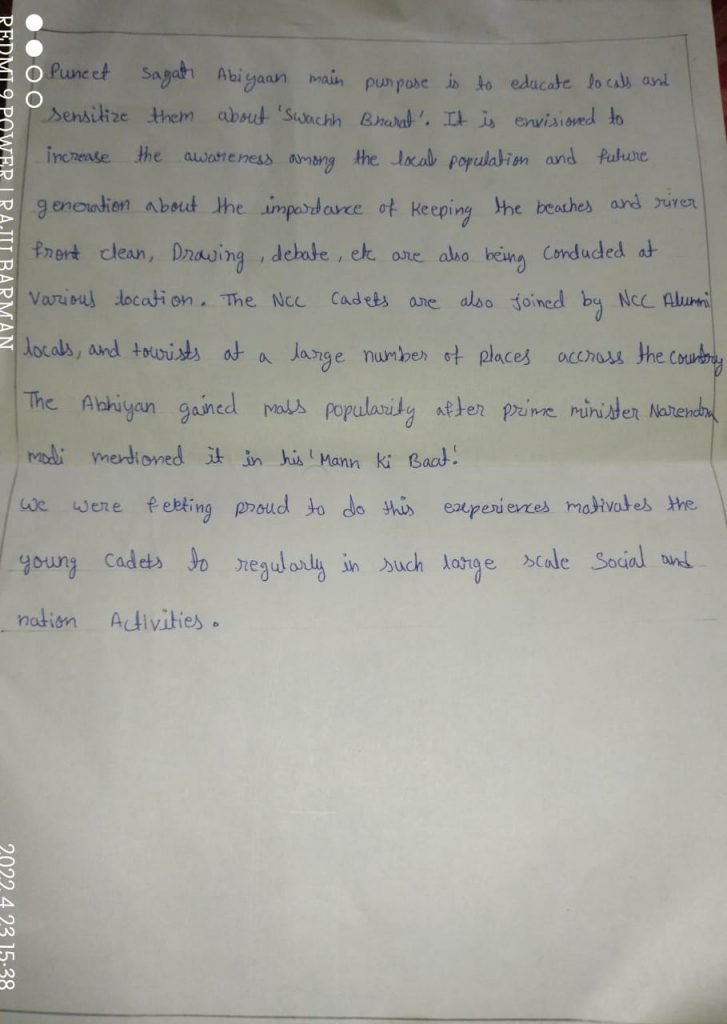 Puneet Sagath Abiyaan main purpose is to educate locals and
sensitize them about 'Swachh Bharat'. It is envisioned to
increase the awareness among the local population and future
generation about the impordance of Keeping the beaches and river
front clean, Drawing, debate, etc are also being Conducded at
Various location. The NCC Cadets are also joined by NCC Alumni
locals, and tourists at a large number of places accross the country
The Abhiyan gained mass popularity after prime minister Narendra
modi mentioned it in his 'Mann Ki Baat'.
We were feeling proud to do this experiences motivates the
young Cadets to regularly in such large scale Social and
nation Activities.
REDMI 9 POWER | RAJU BARMAN
2022.4.23 15:38